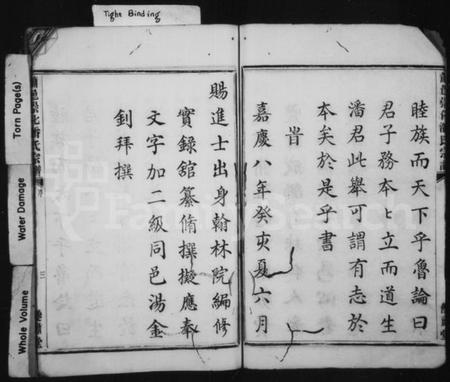 Tight Binding
Torn Page(s)
Water Damage
Whole Volume
睦族而天下乎魯論曰
君子務本〻立而道生
潘君此舉可謂有志於
本矣於是乎書
旹
嘉慶八年癸亥夏六月
賜進士出身翰林院編修
實錄舘纂脩撰擬應奉
文字加二級同邑湯金
釗拜撰
FamilySearch